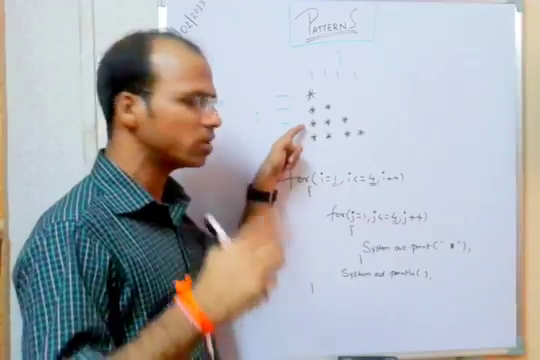 02/2013
PATTERNS
*
* *
* * *
* * * *
for(i=1, i<=4, i++)
{
for(j=1, j<=4, j++)
{
System out print(" * "),
}
System out println( ),
}